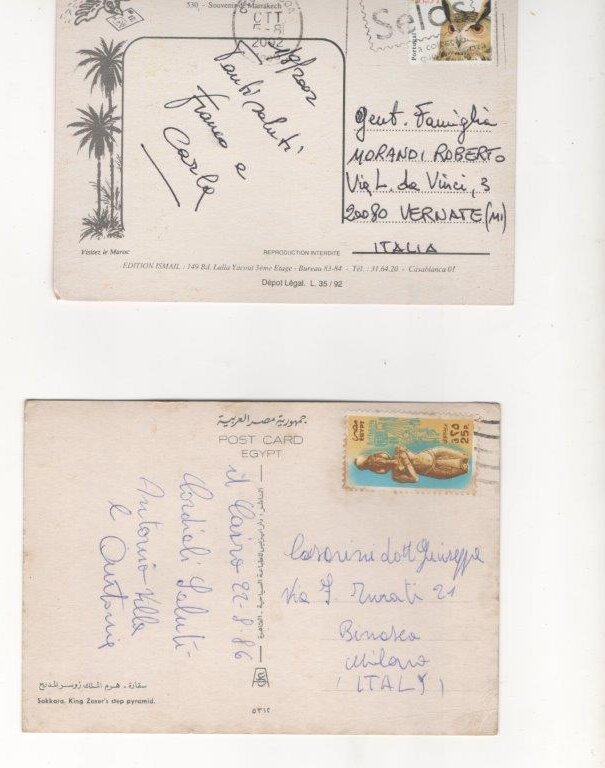 530 - Souvenir de Marrakech
OTT
2002
Selos
Portugal
Tanti saluti
Franco e
Carla
Gent. Famiglia
MORANDI ROBERTO
Via L. da Vinci, 3
20080 VERNATE (MI)
ITALIA
Visitez le Maroc
REPRODUCTION INTERDITE
EDITION ISMAIL : 149 Bd. Lalla Yacout 5ème Etage - Bureau 83-84 - Tél. : 31.64.20 - Casablanca 01
Dépot Légal. L. 35 / 92
جمهورية مصر العربية
POST CARD
EGYPT
مصر
EGYPT
25 P.
il Cairo 22-8-86
Cordiali Saluti
Antonio Villa
e
Casarini dott Giuseppe
Via F. Turati 21
Binasco
Milano
(ITALY)
سقارة - هرم الملك زوسر المدرج
Sakkara, King Zoser's step pyramid.
٥٣١٢